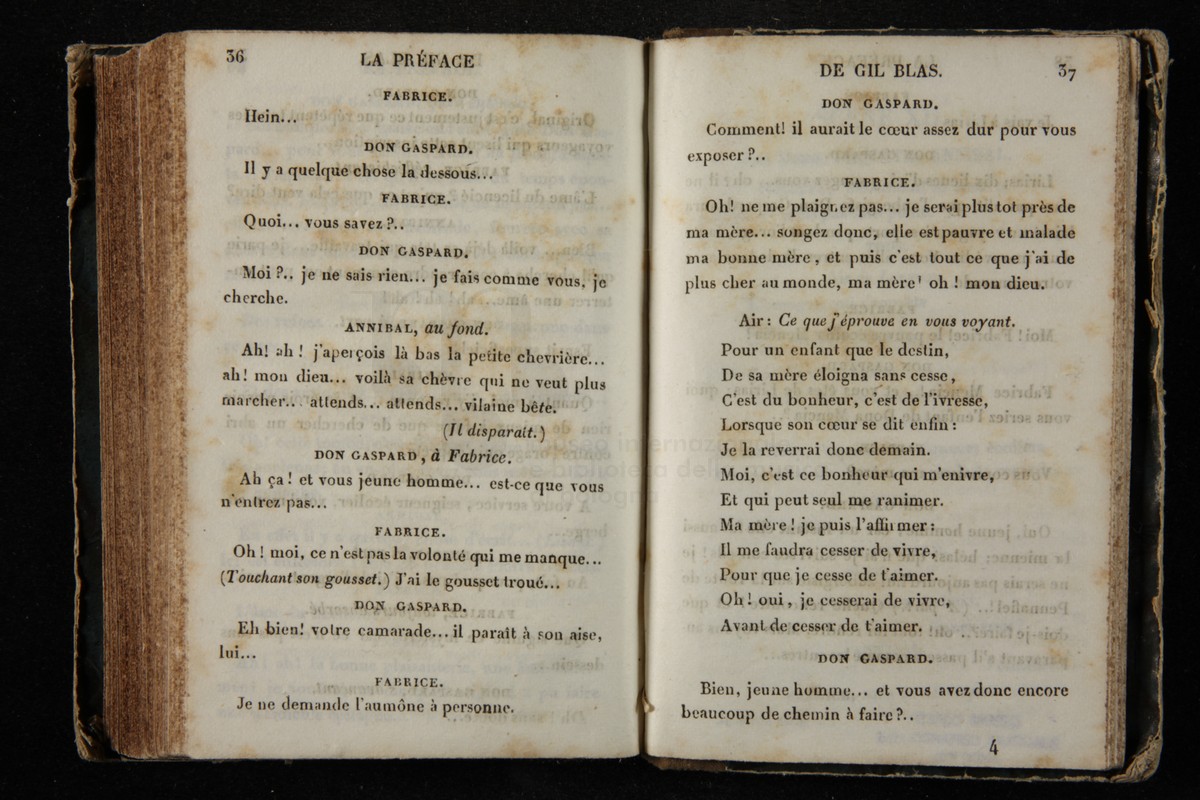 36
LA PRÉFACE
FABRICE.
Hein...
DON GASPARD.
Il y a quelque chose la dessous...
FABRICE.
Quoi... vous savez?..
DON GASPARD.
Moi?.. je ne sais rien... je fais comme vous, je
cherche.
ANNIBAL, au fond.
Ah! ah! j'aperçois là bas la petite chevrière...
ah! mon dieu... voilà sa chèvre qui ne veut plus
marcher... attends... attends... vilaine bête.
(Il disparaît.)
DON GASPARD, à Fabrice.
Ah ça! et vous jeune homme... est-ce que vous
n'entrez pas...
FABRICE.
Oh! moi, ce n'est pas la volonté qui me manque...
(Touchant son gousset.) J'ai le gousset troué...
DON GASPARD.
Eh bien! votre camarade... il paraît à son aise,
lui...
FABRICE.
Je ne demande l'aumône à personne.
DE GIL BLAS.
37
DON GASPARD.
Comment! il aurait le cœur assez dur pour vous
exposer?..
FABRICE.
Oh! ne me plaignez pas... je serai plus tot près de
ma mère... songez donc, elle est pauvre et malade
ma bonne mère, et puis c'est tout ce que j'ai de
plus cher au monde, ma mère! oh! mon dieu.
Air: Ce que j'éprouve en vous voyant.
Pour un enfant que le destin,
De sa mère éloigna sans cesse,
C'est du bonheur, c'est de l'ivresse,
Lorsque son cœur se dit enfin:
Je la reverrai donc demain.
Moi, c'est ce bonheur qui m'enivre,
Et qui peut seul me ranimer.
Ma mère! je puis l'affirmer:
Il me faudra cesser de vivre,
Pour que je cesse de t'aimer.
Oh! oui, je cesserai de vivre,
Avant de cesser de t'aimer.
DON GASPARD.
Bien, jeune homme... et vous avez donc encore
beaucoup de chemin à faire?..
4